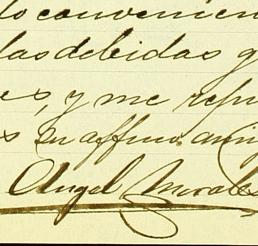 lo convenien
las debidas g
es, y me repi
s su affmo. ami
Angel Morales